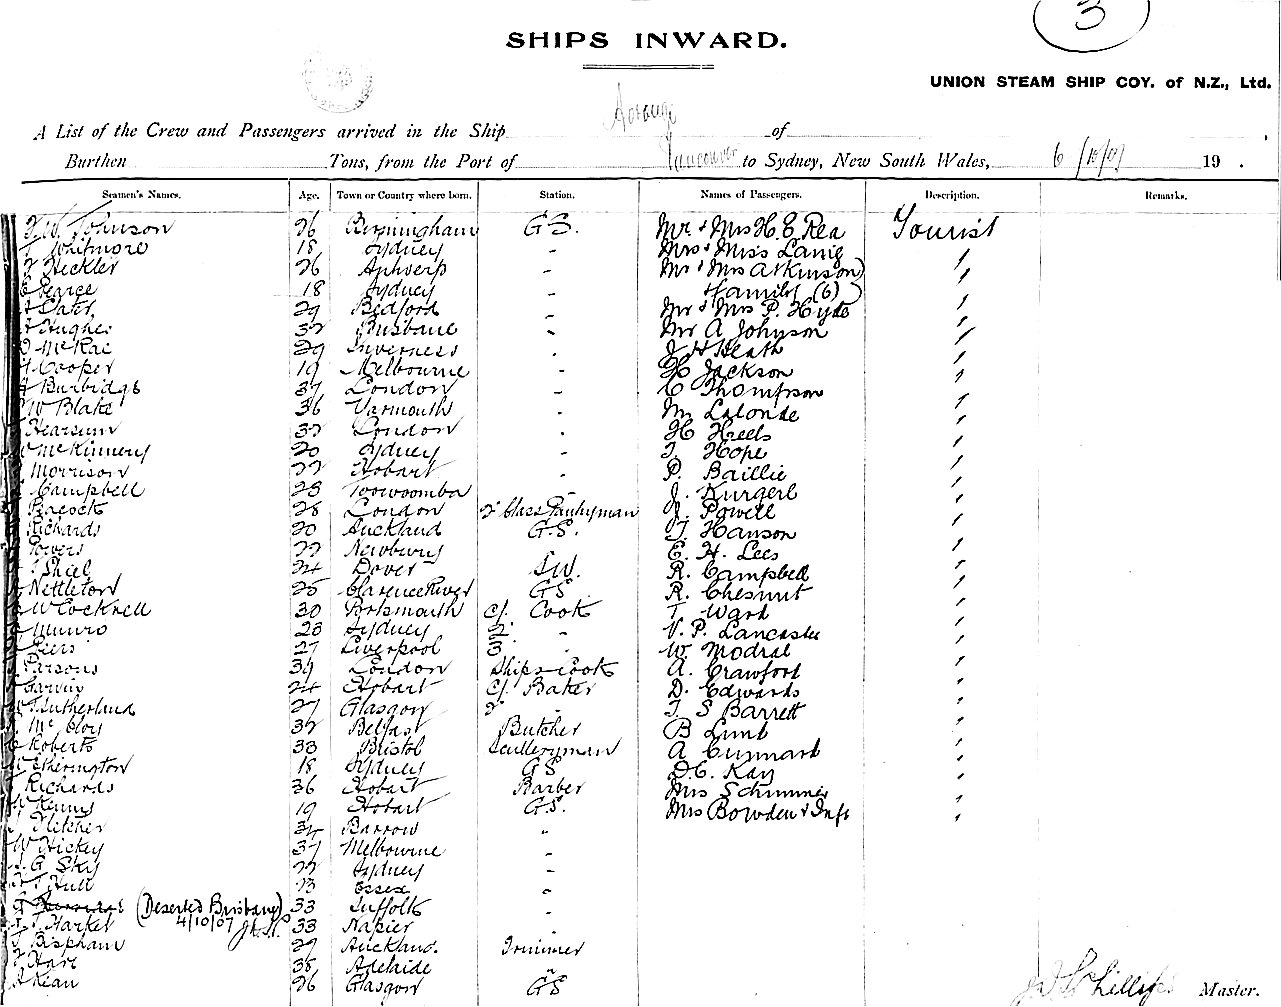 3
SHIPS INWARD.
UNION STEAM SHIP COY. of N.Z., Ltd.
A List of the Crew and Passengers arrived in the Ship Aorangi of
Burthen Tons, from the Port of Vancouver to Sydney, New South Wales, 6/10/07 19 .
Seamen's Names. Age. Town or Country where born. Station. Names of Passengers. Description. Remarks.
Johnson 26 Birmingham G S. Mr & Mrs H. E Rea Tourist
Whitmore 18 Sydney " Mrs & Miss Lanig "
Heckler 26 Antwerp " Mr & Mrs Atkinson "
Pearce 18 Sydney " & family (6) "
29 Bedford " Mr & Mrs P. Hyde "
Hughes 32 Brisbane " Mr A Johnson "
McRae 29 Inverness " J H Heath "
Cooper 19 Melbourne " H Jackson "
Burbidge 37 London " C Thompson "
W Blake 36 Yarmouth " M Lalonde "
Hearsum 32 London " H Heels "
McKinnery 20 Sydney " T. Hope "
Morrison 22 Hobart " P. Baillie "
Campbell 28 Toowoomba " J. Kurgerl "
Pacock 28 London 2' Class Pantryman J. Powell "
Richards 20 Auckland G. S. T. Hanson "
Powers 22 Newbury E. H. Lees "
Shiel 24 Dover S W. R. Campbell "
Nettleton 25 Clarence River G S R. Chesnut "
W Cocknell 30 Portsmouth Cf. Cook T. Ward "
Munro 28 Sydney 2' " V. P. Lancaster "
Peers 27 Liverpool 3' " W Modral "
Parsons 34 London Ships Cook A. Crawford "
Garvey 24 Hobart Cf. Baker D. Edwards "
Sutherland 27 Glasgow 2' " T. S Barrett "
McCloy 32 Belfast Butcher B Lunt "
Roberts 33 Bristol Sculleryman A Cunnard "
Etherington 18 Sydney G S D. C. Kay "
Richards 36 Hobart Barber Mrs Schimmer "
Kenny 19 Hobart G. S. Mrs Bowden & Inft "
Fletcher 34 Barrow "
W Hickey 37 Melbourne "
G Sky 22 Sydney "
T Hull 23 Essex "
(Deserted Brisbane 33 Suffolk "
4/10/07)
T Harker 33 Napier "
Bispham 29 Auckland. Trimmer
Hare 38 Adelaide "
Kean 26 Glasgow G S
Phillips Master.